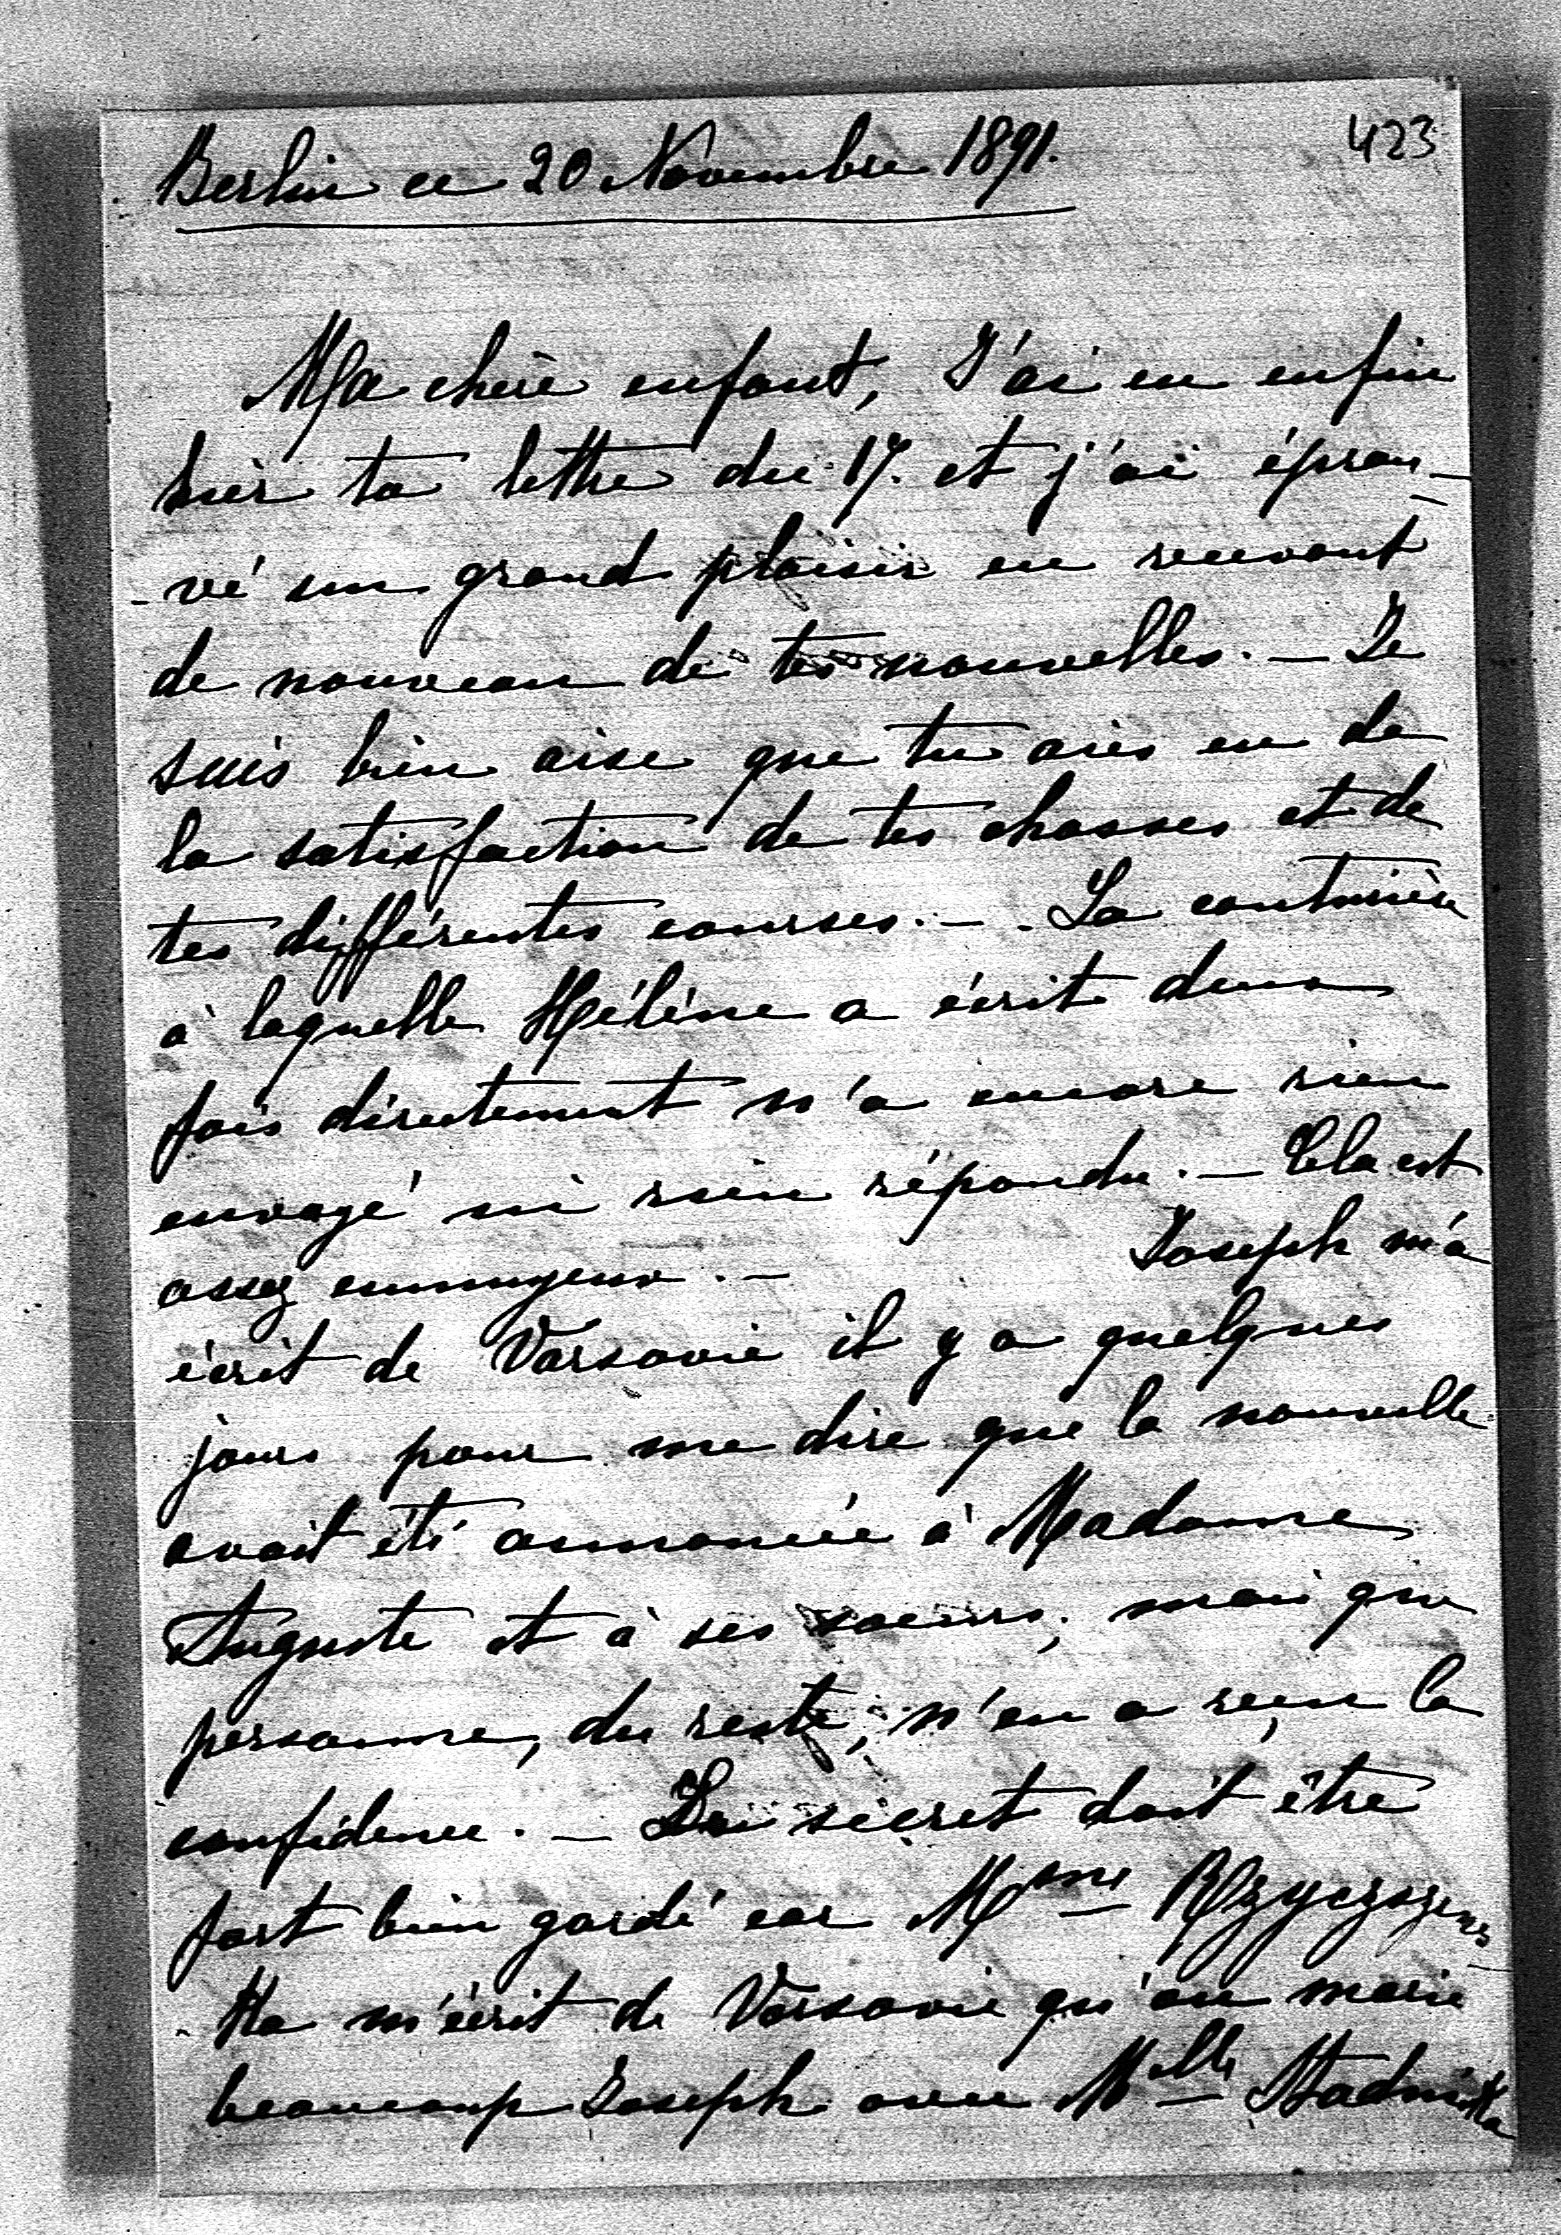 423
Berlin ce 20 Novembre 1891.
Ma chère enfant, J'ai eu enfin
hier ta lettre du 17. et j'ai éprou-
-vé un grand plaisir en recevant
de nouveau de tes nouvelles. — Je
suis bien aise que tu aies eu de
la satisfaction de tes chasses et de
tes différentes courses. — La couturière
à laquelle Hélène a écrit deux
fois directement n'a encore rien
envoyé ni rien répondu. — Cela est
assez ennuyeux. — Joseph m'a
écrit de Varsovie il y a quelques
jours pour me dire que la nouvelle
avait été annoncée à Madame
Auguste et à ses soeurs, mais que
personne, du reste, n'en a reçu la
confidence. — Le secret doit être
fort bien gardé car Mme
m'écrit de Varsovie qu'on marie
beaucoup Joseph avec Mlle